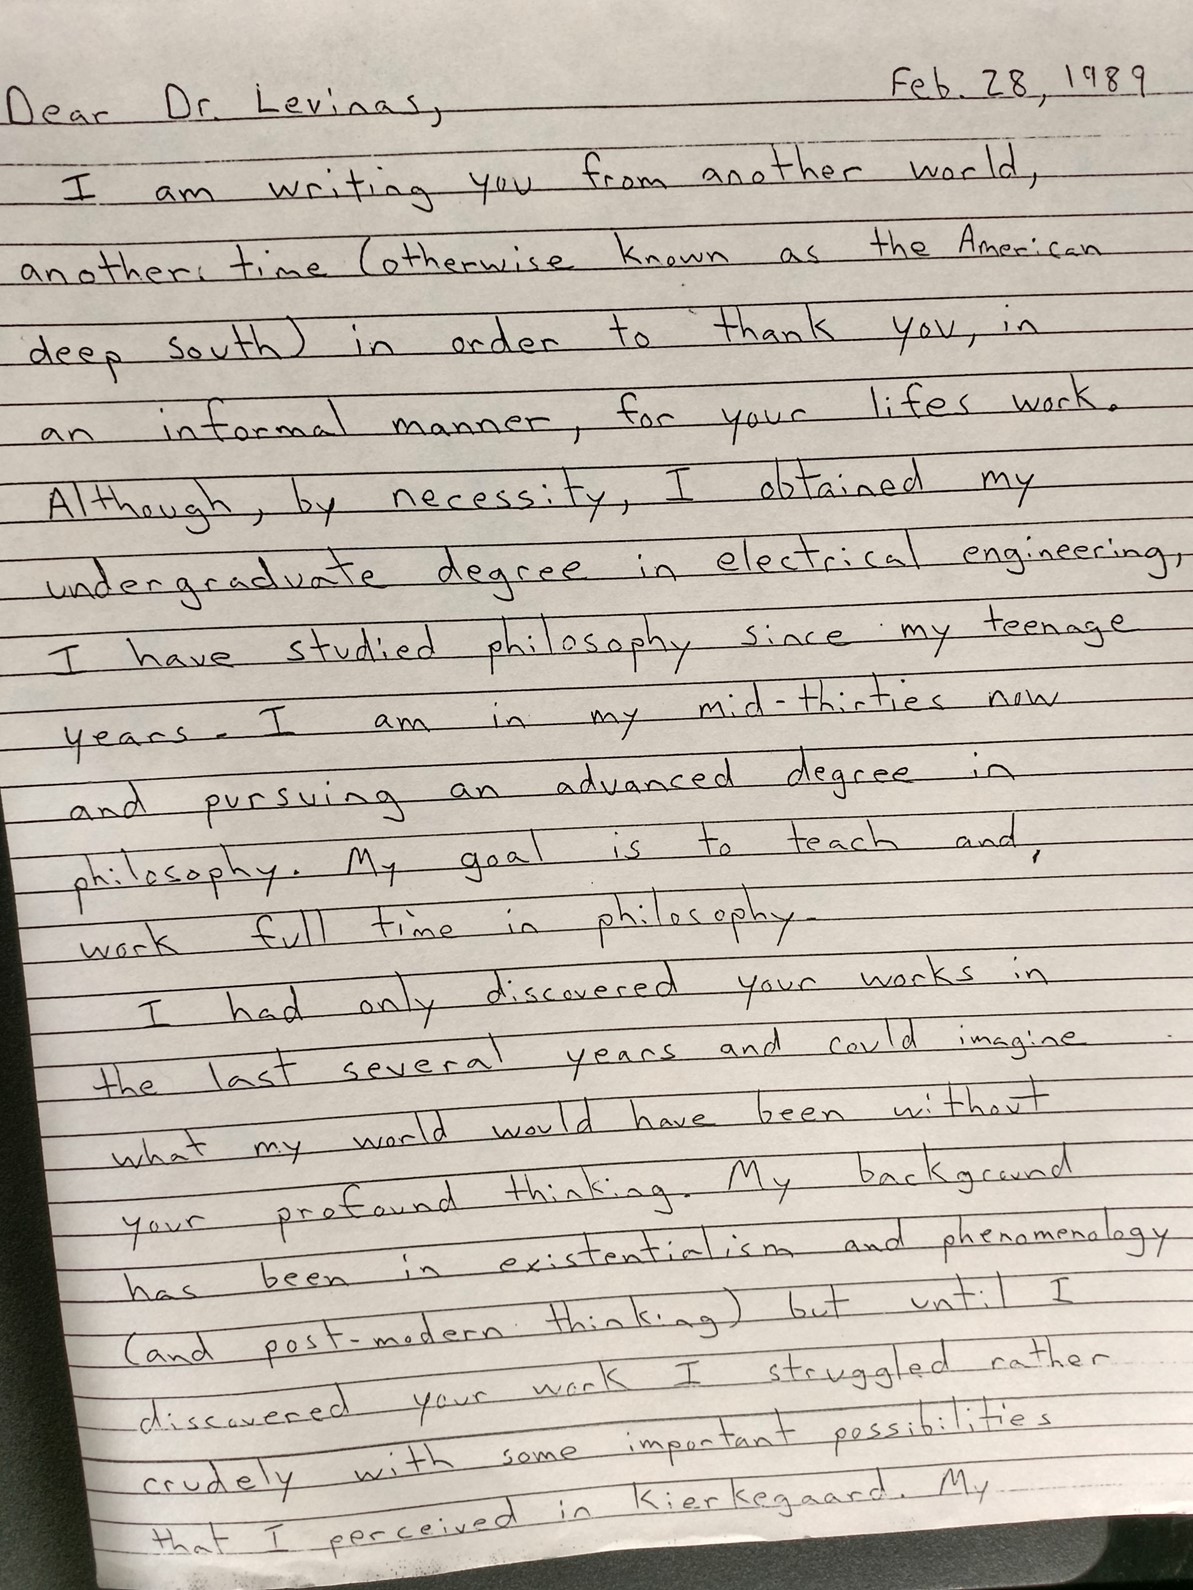 Feb. 28, 1989
Dear Dr. Levinas,
I am writing you from another world,
another time (otherwise known as the American
deep south) in order to thank you, in
an informal manner, for your lifes work.
Although, by necessity, I obtained my
undergraduate degree in electrical engineering,
I have studied philosophy since my teenage
years. I am in my mid-thirties now
and pursuing an advanced degree in
philosophy. My goal is to teach and,
work full time in philosophy.
I had only discovered your works in
the last several years and could imagine
what my world would have been without
your profound thinking. My background
has been in existentialism and phenomenology
(and post-modern thinking) but until I
discovered your work I struggled rather
crudely with some important possibilities
that I perceived in Kierkegaard. My